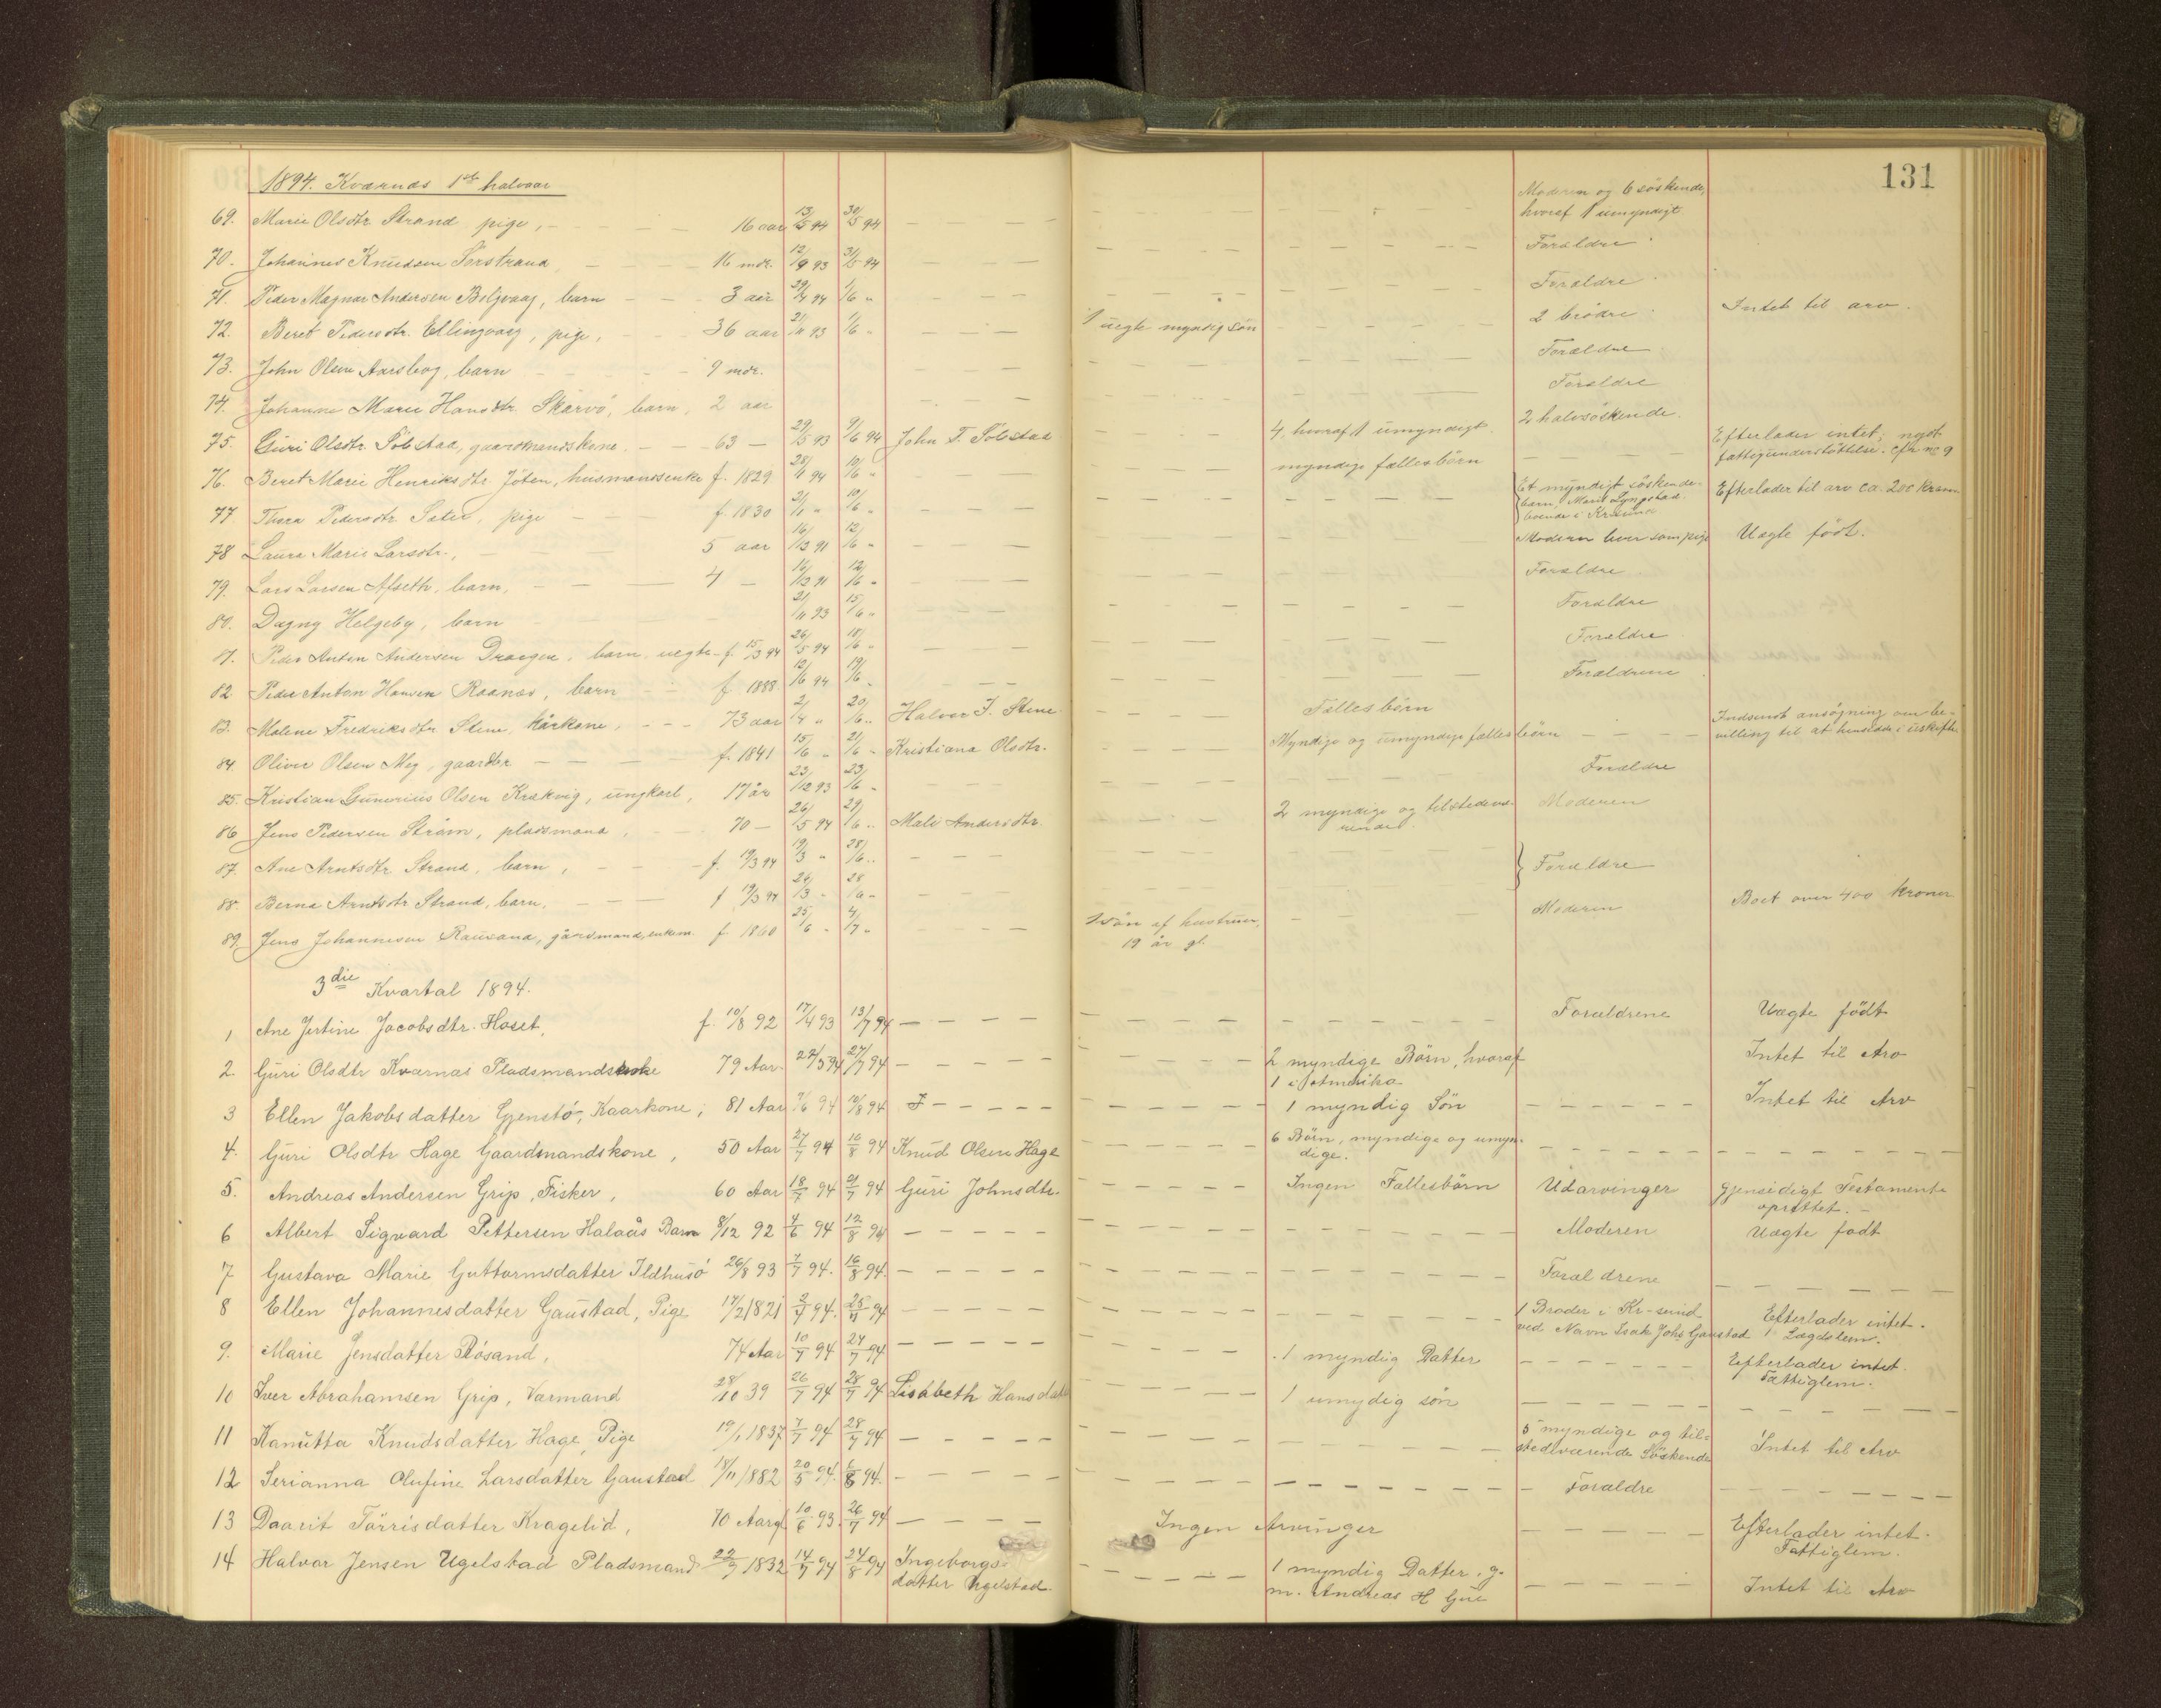 131
1894. Kværnæs 1ste halvaar
69. Marie Olsdtr Strand pige, 16 aar 13/5 94 30/5 94 Moderen og 6 söskende, hvoraf 1 umyndigt
70. Johannes Knudsen Sörstrand 16 mdr. 12/9 93 31/5 94 Forældre
71. Peder Magnar Andersen Boljevaag, barn 3 aar 29/4 94 1/6 " Forældre
72. Beret Pedersdtr. Ellingvaag, pige, 36 aar 21/11 93 1/6 " 1 uegte myndig sön 2 brödre Intet til arv.
73. John Olsen Aarsbog, barn 9 mdr. Forældre
74. Johanne Marie Hansdtr. Skarvö, barn, 2 aar Forældre
75. Guri Olsdtr. Sölstad, gaardmandskone. 63 — 29/5 93 9/6 94 John T. Sölstad 4 hvoraf 1 umyndigt. 2 halvsöskende.
76. Beret Marie Henriksdtr. Jöten, husmandsenke f. 1829 28/1 94 10/6 " myndige fællesbörn Efterlader intet, nydt fattigunderstöttelse. cfr no 9
77. Thora Pedersdtr Sæter, pige f. 1830 2/1 " 10/6 " Et myndigt söskendebarn, Marit Lyngstad boende i Kr.sund Efterlader til arv ca. 200 kroner
78 Laura Marie Larsdtr., 5 aar 16/13 91 12/6 " Moderen lever som pige Uægte födt.
79. Lars Larsen Afseth, barn, 4 — 16/12 91 12/6 " Forældre
80. Dagny Helgeby, barn 21/11 93 15/6 " Forældre
81. Peder Anton Andersen Draagen, barn, uegte f. 15/3 94 26/5 94 18/6 " Forældre
82 Peder Anton Hansen Raanæs, barn f. 1888 12/6 94 19/6 " Forældrene
83. Malene Fredriksdtr Stene, kårkone, 73 aar 2/4 " 20/6 " Halvor J. Stene Fælles börn
84. Oliver Olsen Meg, gaardbr f. 1841 15/6 " 21/6 " Kristiana Olsdtr. Myndige og umyndige fælles börn Indsendt ansögning om bevilling til at hensidde i uskifte
85. Kristian Gunerius Olsen Krekvig, ungkarl, 17 år 23/12 93 23/6 " Forældre
86 Jens Pedersen Ström, pladsmand, 70 — 26/5 94 29/6 " Mali Andersdtr. 2 myndige og tilstedeværende. Moderen
87. Ane Arntsdtr Strand, barn, f. 19/3 94 19/3 " 28/6 " Forældre
88. Berna Arntsdtr Strand, barn, f 19/3 94 24/3 " 28/6 "
89. Jens Johannesen Rausand, gårdmand, enkem. f. 1860 25/6 " 4/7 " 1 sön af hustruen, 19 år gl. Moderen Boet over 400 kroner
3die Kvartal 1894.
1 Ane Jertine Jacobsdtr. Hoset, f. 10/8 92 17/4 93 13/7 94 Forældrene Uægte födt
2. Guri Olsdtr Kværnæs Pladsmandsenke 79 Aar 22/5 94 27/7 94 2 myndige Börn, hvoraf 1 i Amerika Intet til Arv
3 Ellen Jakobsdatter Gjenstö, Kaarkone, 81 Aar 7/6 94 10/8 94 1 myndig Sön Intet til Arv
4. Guri Olsdtr Hage Gaardmandskone, 50 Aar 27/7 94 10/8 94 Knud Olsen Hage 6 Börn, myndige og umyndige.
5. Andreas Andersen Grip, Fisker, 60 Aar 18/7 94 21/7 94 Guri Johnsdtr. Ingen Fællesbörn Udarvinger gjensidigt Testamente oprettet.
6 Albert Sigvard Pettersen Halaås Barn 8/12 92 4/6 94 12/8 94 Moderen Uægte födt
7 Gustava Marie Guttormsdatter Ildhusö 26/8 93 7/7 94. 16/8 94. Forældrene
8 Ellen Johannesdatter Gaustad, Pige 17/2 1821 2/7 94. 25/7 94 1 Broder i Kr-sund ved Navn Isak Johs Gaustad Efterlader intet. Lægdslem.
9. Marie Jensdatter Rösand, 74 Aar 10/7 94 24/7 94 1 myndig Datter Efterlader intet. Fattiglem.
10 Iver Abrahamsen Grip, Varmand 28/10 39 26/7 94 28/7 94 Lisabeth Hansdatt 1 umydig sön
11 Kanutta Knudsdatter Hage, Pige 19/1 1837 7/7 94 28/7 94 5 myndige og tilstedværende Söskende Intet til Arv
12 Serianna Olufine Larsdatter Gaustad 18/11 1882 20/5 94. 6/8 94. Forældre
13 Daarit Törrisdatter Kragelid, 70 Aargl 10/6 93. 26/7 94 Ingen Arvinger Efterlader intet. Fattiglem.
14 Halvar Jensen Ugelstad Pladsmand 22/9 1832 14/7 94 24/8 94 Ingeborgsdatter Ugelstad. 1 myndig Datter. g. m. Andreas H Intet til Arv